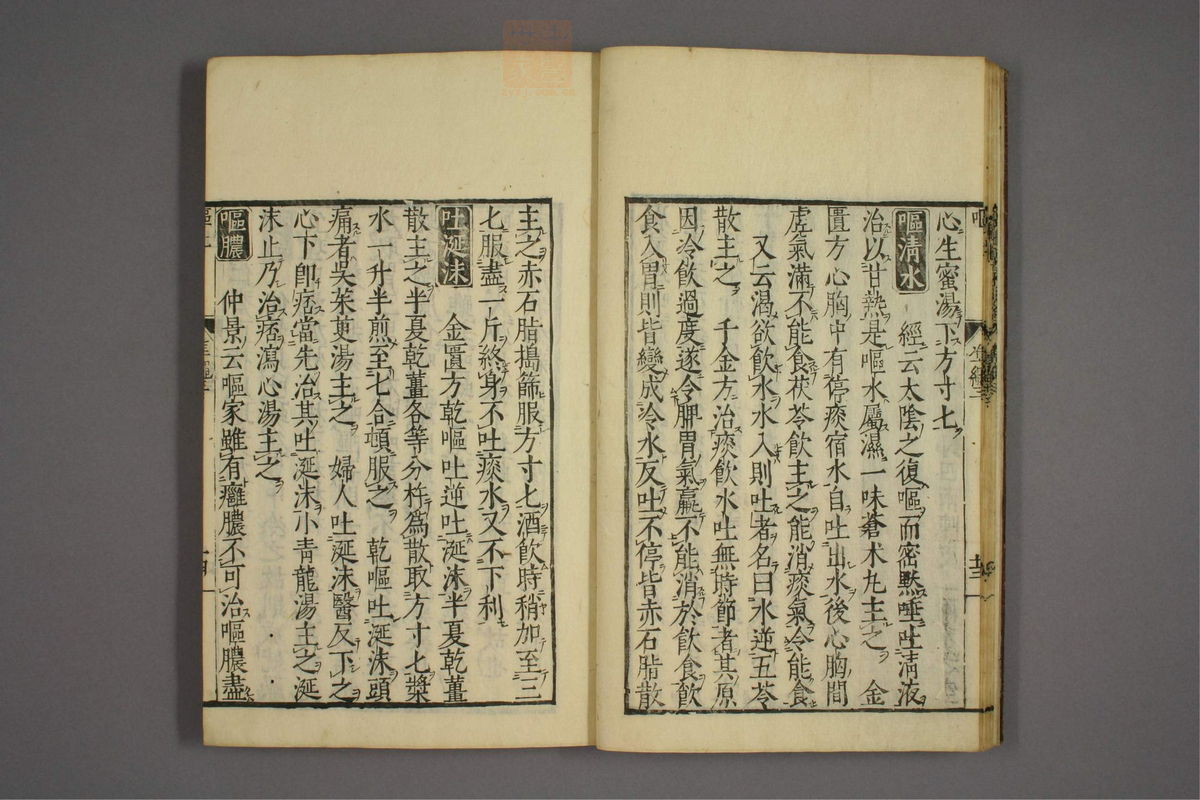 心生蜜湯下方寸匕
嘔清水　經云太陰之復嘔而密默唾吐淸液
治以甘熱是嘔水屬濕一味蒼术丸主之　金
匱方心胸中有停痰宿水自吐出水後心胸間
虛氣滿不能食茯苓飮主之能消痰氣冷能食
又云渴欲飮水水入則吐者名曰水逆五苓
散主之　千金方治痰飮水吐無時節者其原
因冷飮過度遂令脾胃氣羸不能消於飮食飮
食入胃則皆變成冷水反吐不停皆赤石脂散
主之赤石脂搗篩服方寸匕酒飮時稍加至三
匕服盡一斤終身不吐痰水又不下利
吐涎沫　金匱方乾嘔吐逆吐涎沫半夏乾薑
散主之半夏乾薑各等分杵為散取方寸匕漿
水一升半煎至七合頓服之　乾嘔吐涎沫頭
痛者吳茱萸湯主之　婦人吐涎沫醫反下之
心下卽痞當先治其吐涎沫小靑龍湯主之涎
沫止乃治痞瀉心湯主之
嘔膿　仲景云嘔家雖有癰膿不可治嘔膿盡